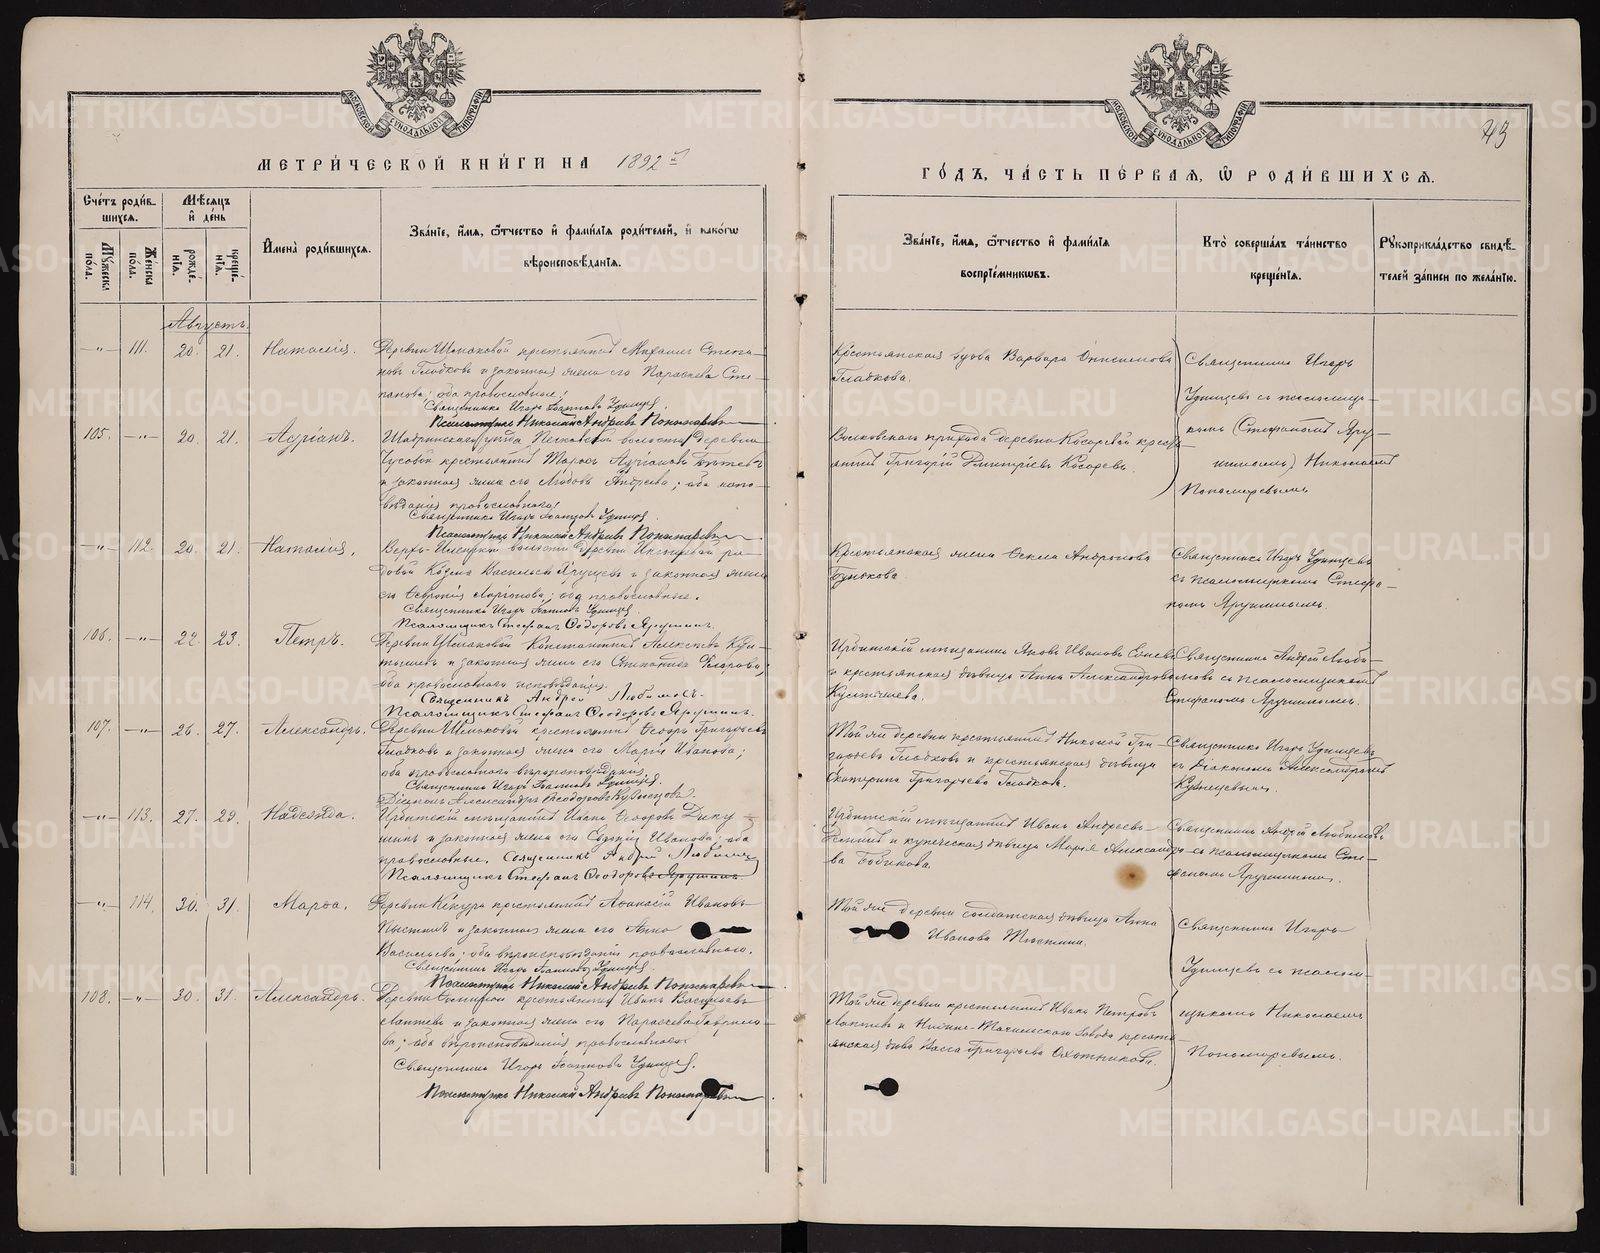 МЕТРИ́ЧЕСКОЙ КНИ́ГИ НА 1892 й
Сче́тъ роди́в-
шихся.
Мѣсяцъ
и̑ де́нь
Му́жеска
по́ла.
Же́нска
по́ла.
рожде́-
нїя.
креще́-
нїя.
И̑мена̀ роди́вшихся.
Зва́нїе, и̑мя, ѻ҆́тчество и̑ фами́лїя роди́телей, и̑ како́гѡ
вѣроисповѣ́данїя.
Августъ.
-"- 111. 20. 21. Наталія. Деревни Шмаковой крестьянинъ Михаилъ Степа-
новъ Гладковъ и законная жена его Параскева Сте-
панова; оба православные.
Священникъ Игорь Іоанновъ Удинцев.
Псаломщикъ Николай Андреевъ Пономаревъ
105. -"- 20. 21. Адріанъ. Шадринскаго уѣзда волости деревни
крестьянинъ Тарасъ Адріановъ
и законная жена его Любовь Андреева; оба испо-
вѣданія православнаго.
Священникъ Игорь Іоанновъ Удинцев.
Псаломщикъ Николай Андреевъ Пономаревъ
-"- 112. 20. 21. Наталія. волости деревни ря-
довой Козма Васильевъ Ячунцевъ и законная жена
его Евгенія Ларіонова; оба православные.
Священникъ Игорь Іоанновъ Удинцев.
Псаломщикъ Стефанъ Ѳеодоровъ Яружинъ.
106. -"- 22. 23. Петръ. Деревни Шмаковой Константинъ Алексѣевъ
и законная жена его Степанида Егорова;
оба православнаго исповѣданія.
Священникъ Андрей Любимовъ.
Псаломщикъ Стефанъ Ѳеодоровъ Яружинъ.
107. -"- 26. 27. Александръ. Деревни Шмаковой крестьянинъ Ѳеодоръ Григорьевъ
Гладковъ и законная жена его Марія Иванова;
оба православнаго вѣроисповѣданія.
Священникъ Игорь Іоанновъ Удинцев.
Діаконъ Александръ Ѳеодоровъ Кузнецовъ.
-"- 113. 27. 29. Надежда. Ирбитскій мѣщанинъ Иванъ Ѳеодоровъ
и законная жена его Иванова; оба
православные. Священникъ Андрей Любимовъ
Псаломщикъ Стефанъ Ѳеодоровъ Яружинъ
-"- 114. 30. 31. Марѳа. Деревни Кекура крестьянинъ Аѳанасій Ивановъ
и законная жена его Анна
Васильева; оба вѣроисповѣданія православнаго.
Священникъ Игорь Іоанновъ Удинцев.
Псаломщикъ Николай Андреевъ Пономаревъ
108. -"- 30. 31. Александръ. Деревни крестьянинъ Иванъ Васильевъ
Лаптевъ и законная жена его Параскева Гаврило-
ва; оба вѣроисповѣданія православнаго.
Священникъ Игорь Іоанновъ Удинцев.
Псаломщикъ Николай Андреевъ Пономаревъ
43
ГО́ДЪ, ЧА́СТЬ ПЕ́РВАЯ, Ѽ РОДИ́ВШИХСЯ.
Зва́нїе, и̑мя, ѻ҆́тчество и̑ фами́лїя
воспрїе́мникѡвъ.
Кто̀ соверша́лъ та́инство
креще́нїя.
Рꙋкоприкла́дство свидѣ́-
телей за́писи по жела́нїю.
Крестьянская вдова Варвара Онисимова
Гладкова.
Священникъ Игорь
Удинцевъ съ псаломщи-
комъ (Стефаномъ Яру-
жинымъ) Николаемъ
Пономаревымъ
Волковскаго прихода деревни Косаревой кресть-
янинъ Григорій Дмитріевъ Косаревъ.
Крестьянская жена Ѳекла Андронова
Бунькова.
Священникъ Игорь Удинцевъ
съ псаломщикомъ Стефа-
номъ Яружинымъ.
Ирбитскій мѣщанинъ Яковъ Ивановъ
и крестьянская дѣвица Анна Александрова
Священникъ Андрей Люби-
мовъ съ псаломщикомъ
Стефаномъ Яружинымъ.
Той же деревни крестьянинъ Николай Гри-
горьевъ Гладковъ и крестьянская дѣвица
Екатерина Григорьева Гладкова.
Священникъ Игорь Удинцевъ
съ діакономъ Александромъ
Кузнецовымъ.
Ирбитскій мѣщанинъ Иванъ Андреевъ
и купеческая дѣвица Марія Александро-
ва Бобикова.
Священникъ Андрей Любимовъ
съ псаломщикомъ Сте-
фаномъ Яружинымъ.
Той же деревни солдатская дѣвица Анна
Иванова
Священникъ Игорь
Удинцевъ съ псалом-
щикомъ Николаемъ
Пономаревымъ.
Той же деревни крестьянинъ Иванъ Петровъ
Лаптевъ и Нижне-Тагильскаго завода кресть-
янская дѣва Васса Григорьева Охотникова.
METRIKI.GASO-URAL.RU